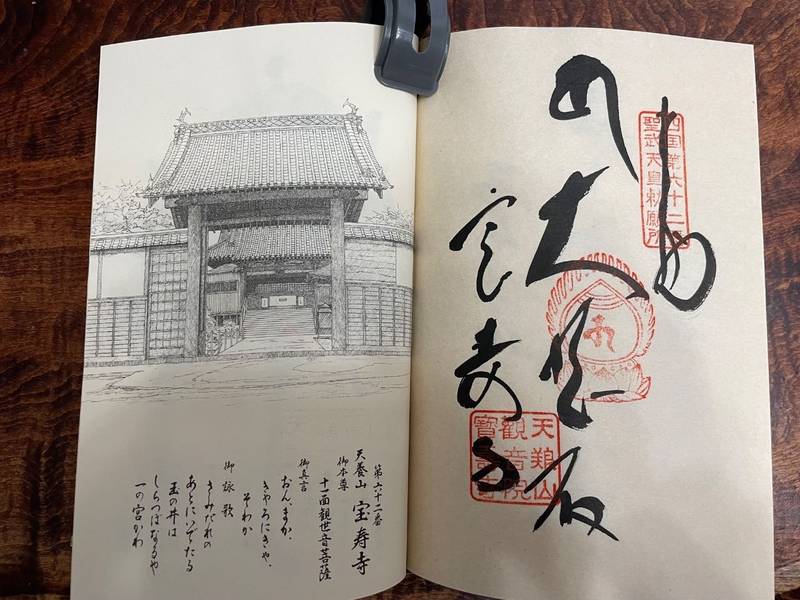 四国第六十二番
聖武天皇勅願所
宝寿寺
天養山
觀音院
寶壽寺
第六十二番
天養山 宝寿寺
御本尊
十一面観世音菩薩
御真言
おん、まか、
きゃろにきゃ、
そわか
御詠歌
さみだれの
あとにいでたる
玉の井は
しらつぼなるや
一の宮かわ